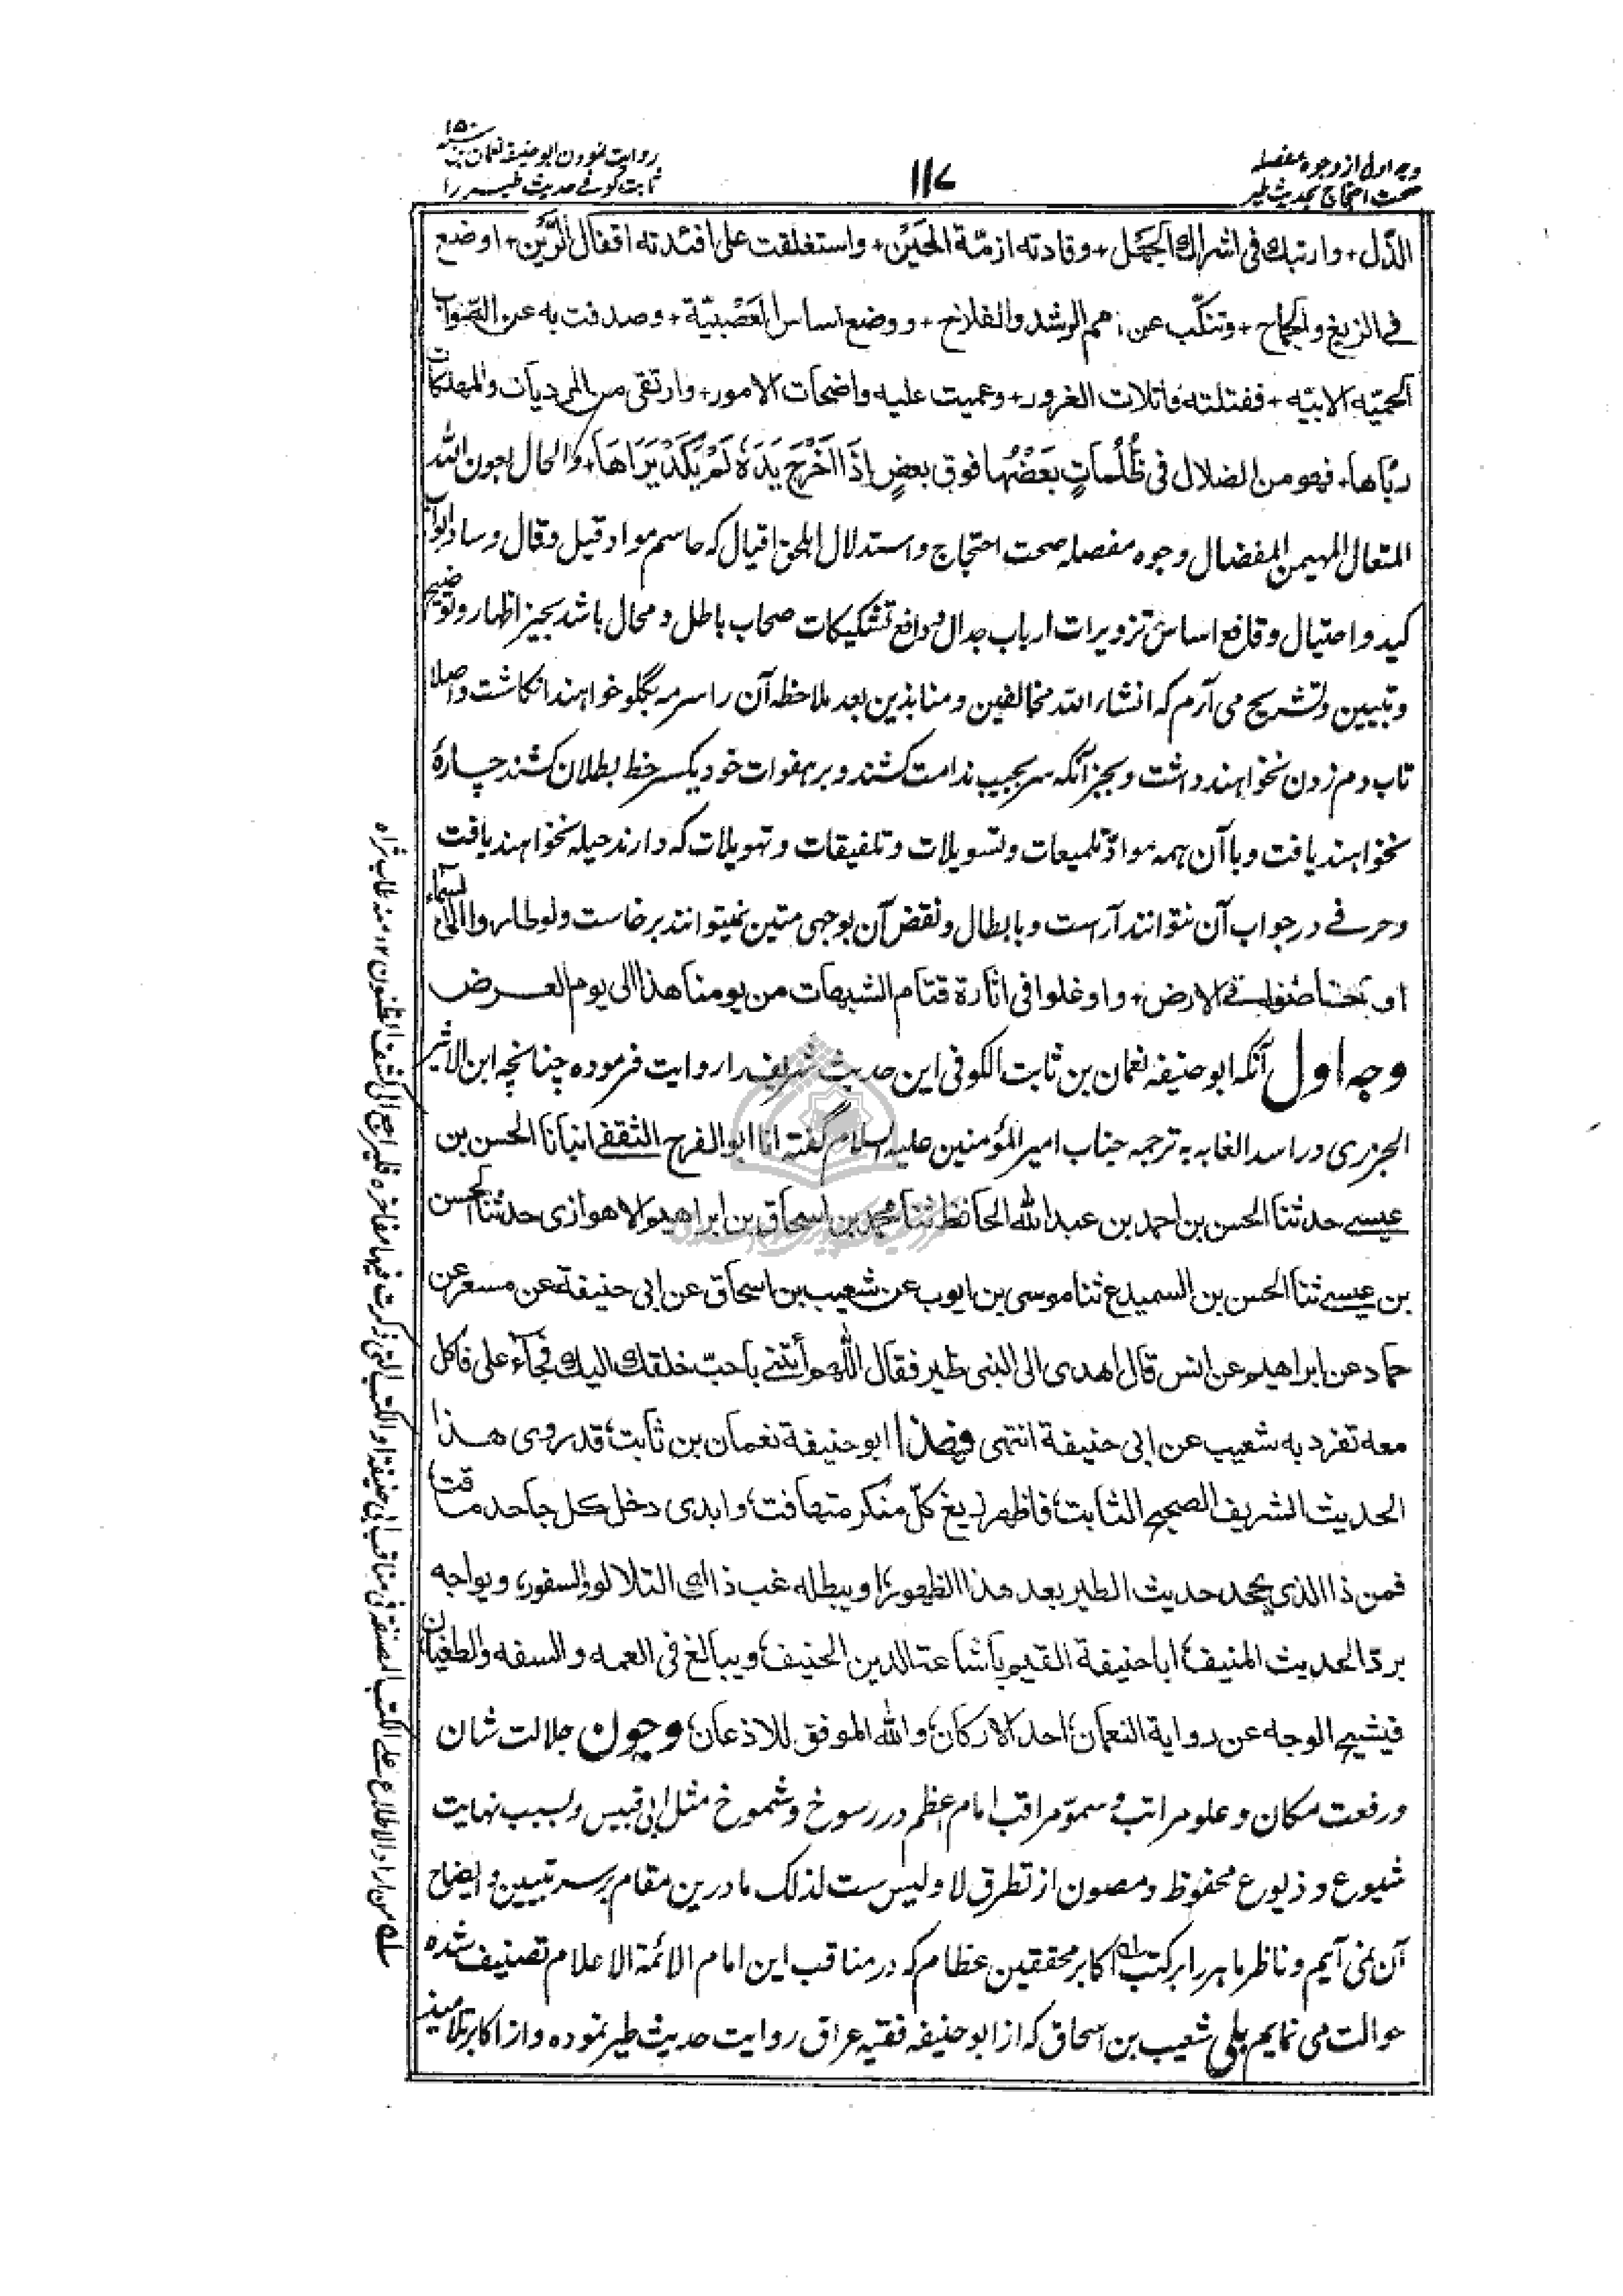 وجه اول از وجوه مفصله
صحت احتجاج بحدیث طیر
۱۱۷
روایت نمودن ابو حنیفه نعمان بن
ثابت کوفی حدیث طیر را
۱۵۰
الدّل + وارتبك فی اشراك الجهل + وقادته ازمّة الحَیْن + واستغلقت علی افئدته اقفال الرَّین + اوضع
فی الزیغ والجماح + وتنکّب عن امم الرشد والفلاح + ووضع اساس العصبیّة + وصدفت به عن الصّواب
الحمیّه الابیّه + ففتلته فاتلات الغرور + وعمیت علیه واضحات الامور + وارتقی من المردیات والمهلکات
ربّاها + فهو من الضلال فی ظُلُماتٍ بَعْضُها فوق بعضٍ إِذَا اَخْرَجَ یَدَهُ لَمْ یَکَدْ یَرَاهَا + والحال بعون الله
المتعال المهیمن المفضال وجوه مفصله صحت احتجاج و استدلال اهل حق اقیال که حاسم مواد قیل و قال و ساد ابواب
کید و احتیال و قالع اساس تزویرات ارباب جدال و دافع تشکیکات صحاب باطل و محال باشد بحیز اظهار و توضیح
و تبیین و تشریح می آرم که انشاء الله مخالفین و منابذین بعد ملاحظه آن را سرمه بگلو خواهند انکاشت و اصلا
تاب دم زدن نخواهند داشت و بجز آنکه سر بجیب ندامت کشند و بر هفوات خود یکسر خط بطلان کشند چارهٔ
نخواهند یافت و با آن همه موادّ تلمیعات و تسویلات و تلفیقات و تهویلات که دارند حیله نخواهند یافت
و حرفی در جواب آن نتوانند آراست و با بطال و نقض آن بوجهی متین نمیتوانند برخاست ولو طاروا الی السماء
او فی الارض + واوغلوا فی اثارة قتام الشبهات من یومنا هذا الی یوم العرض
وجه اول آنکه ابو حنیفه نعمان بن ثابت الکوفی این حدیث شریف را روایت فرموده چنانچه ابن الاثیر
الجزری در اسد الغابه به ترجمه جناب امیر المؤمنین علیه السلام گفته انا ابو الفرج الثقفی انبانا الحسن بن
عیسی حدثنا الحسن بن احمد بن عبد الله الحافظ ثنا محمد بن اسحاق بن ابراهیم الاهوازی حدثنا الحسن
بن عیسی ثنا الحسن بن السمیدع ثنا موسی بن ایوب عن شعیب بن اسحاق عن ابی حنیفة عن مسعر عن
حماد عن ابراهیم عن انس قال اهدی الی النبی طیر فقال اللهم أئتنی باحبّ خلقك الیك فجآء علی فاکل
معه تفرد به شعیب عن ابی حنیفة انتهی فهذا ابو حنیفة نعمان بن ثابت، قد روی هذا
الحدیث الشریف الصحیح الثابت، فاظهر زیغ کلّ منکر متهافت، وابدی دخل کل جاحد ماقت
فمن ذا الذی یجحد حدیث الطیر بعد هذا الظهور، او یبطله غب ذاك التلالؤ والسفور، ویواجه
بردّ الحدیث المنیف، ابا حنیفة القیم باشاعة الدین الحنیف، ویبالغ فی العمه والسفه والطغیان
فیشیح الوجه عن روایة النعمان، احد الارکان، والله الموفق للاذعان، وچون جلالت شان
و رفعت مکان و علو مراتب و سموّ مراقب امام اعظم در رسوخ و شموخ مثل ابی قبیس و بسبب نهایت
شیوع و ذیوع محفوظ و مصون از تطرق لا و لیس ست لذلک ما درین مقام بر سر تبیین و ایضاح
آن نمی آییم و ناظر ماهر را بر کتب اکابر محققین عظام که در مناقب این امام الائمة الاعلام تصنیف شده
حوالت می نمایم بلی شعیب بن اسحاق که از ابو حنیفه فقیه عراق روایت حدیث طیر نموده و از اکابر تلامیذ
من اراد الاطلاع علی الکتب المصنفة فی مناقب ابی حنیفة او الکتب التی ذکرت فیها مفاخره فلیراجع الی کشف الظنون ۱۲ منه طاب ثراه